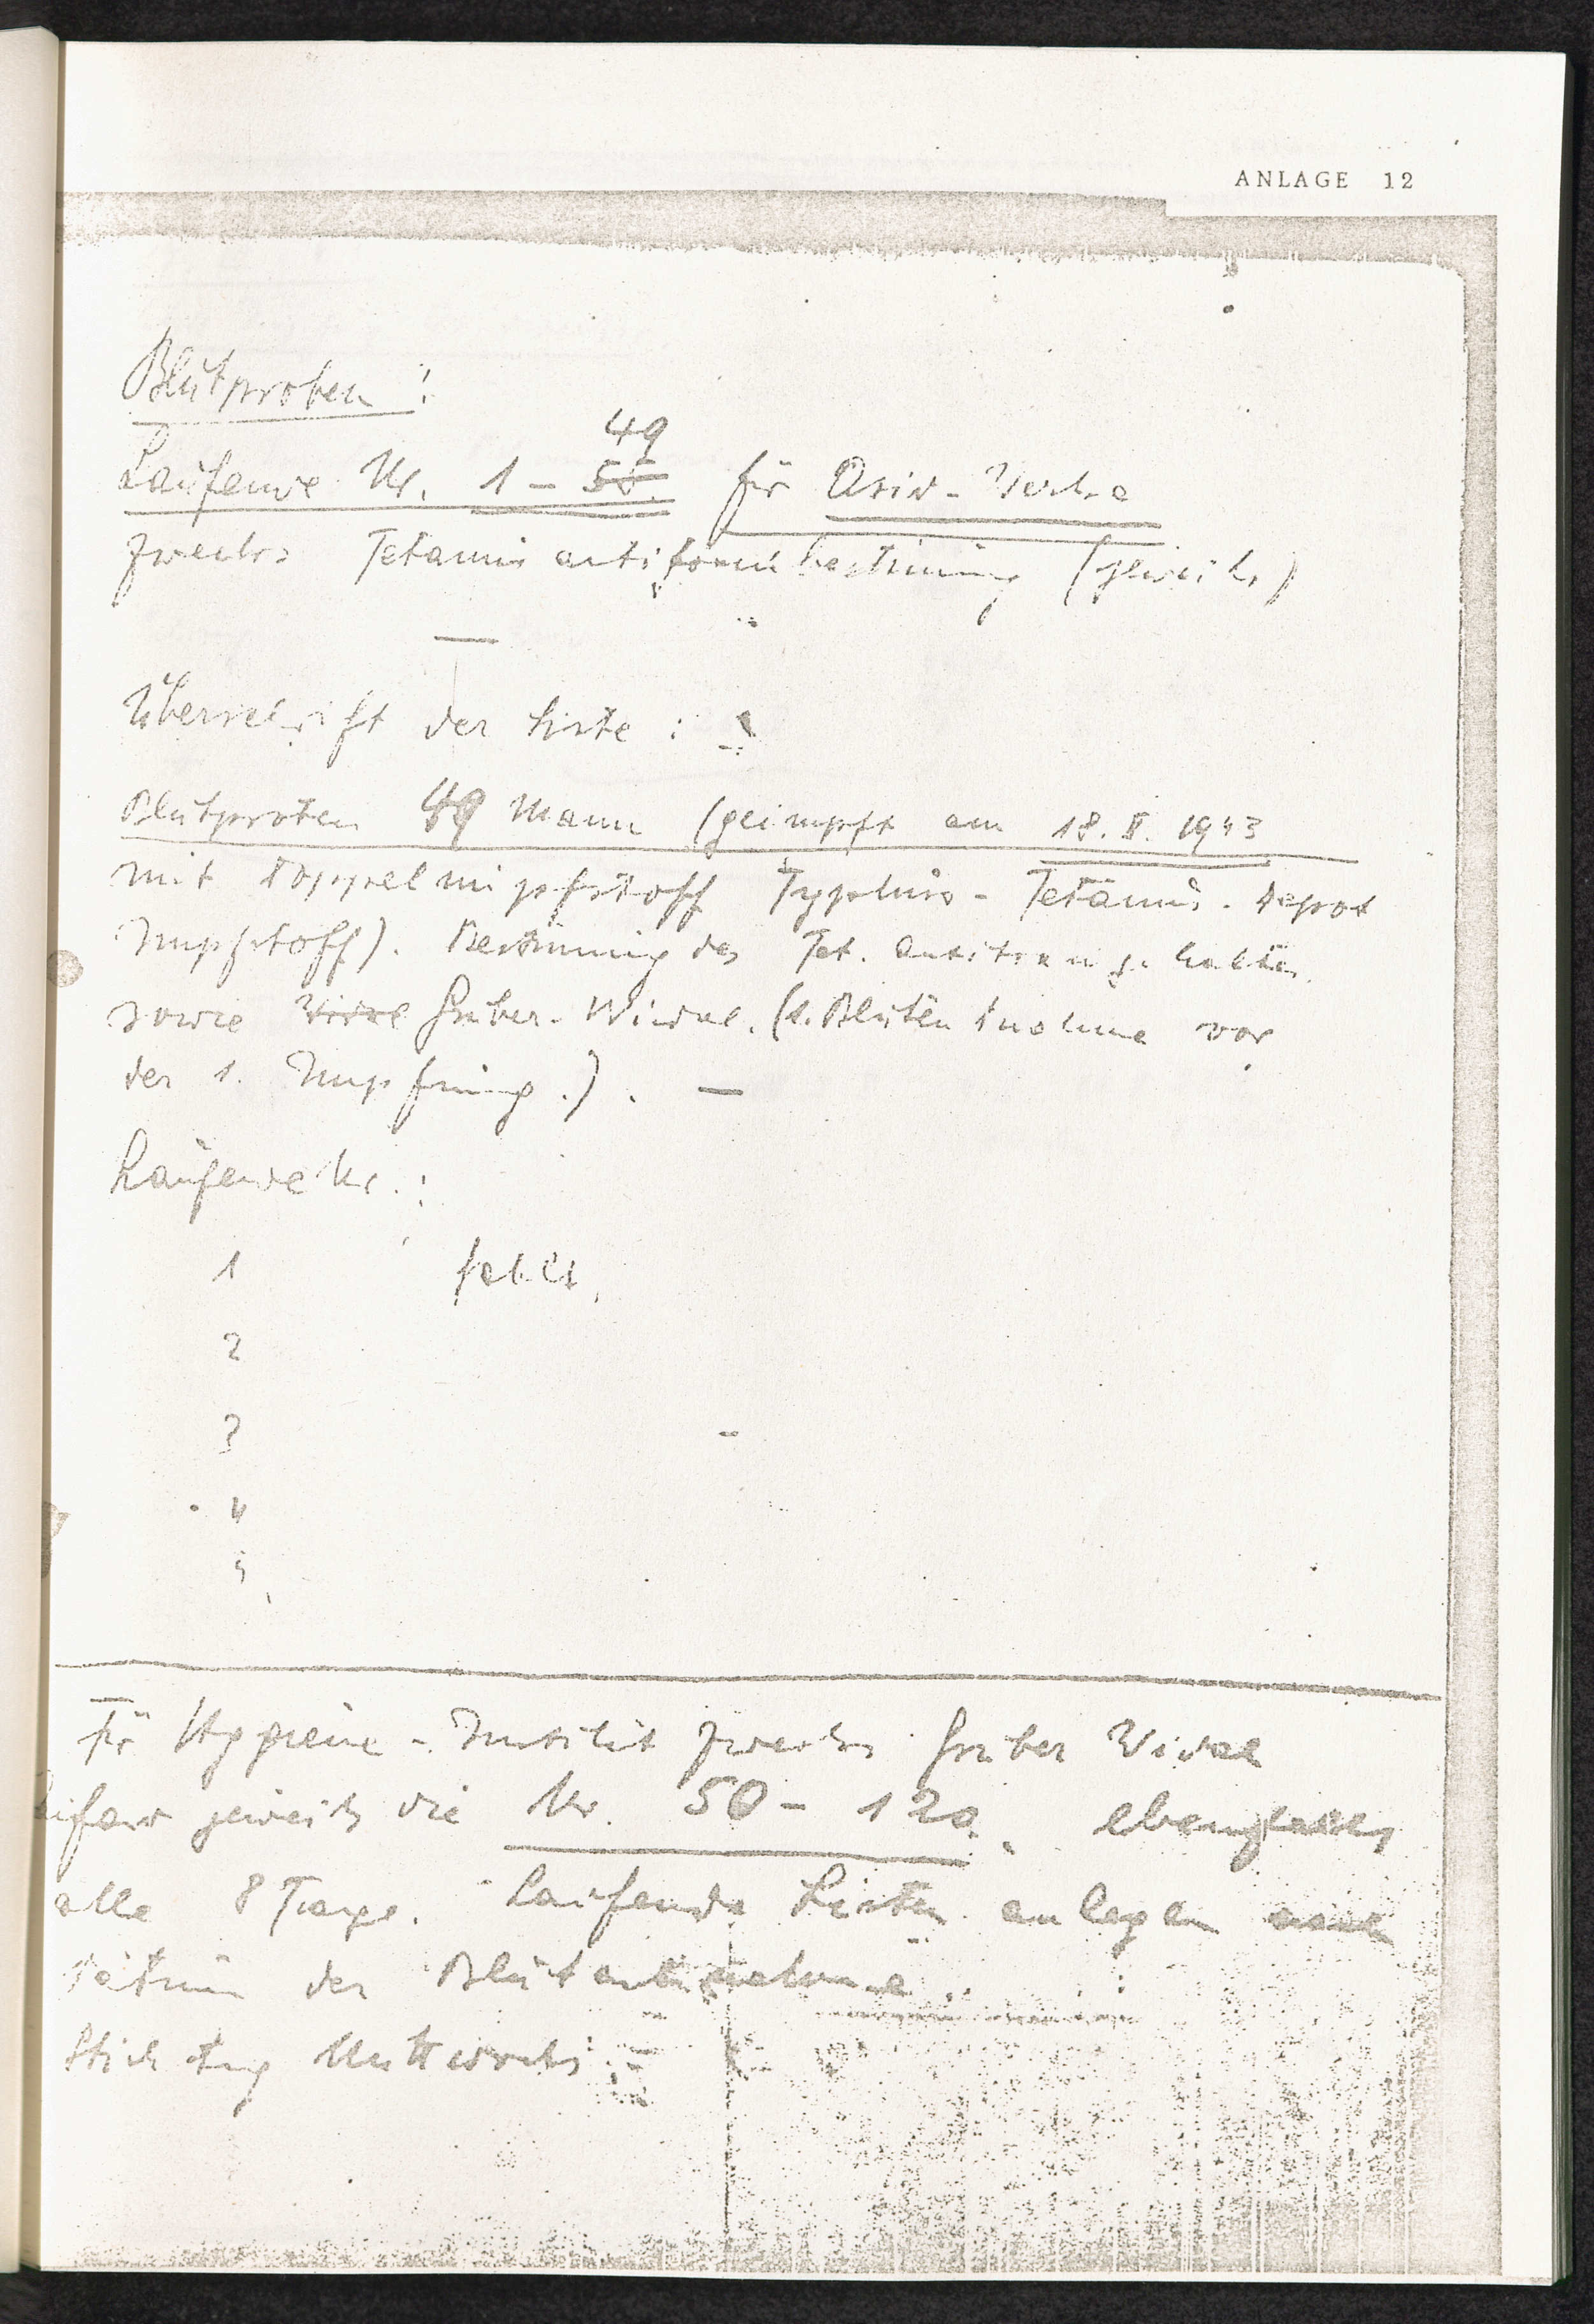 ANLAGE 12
Blutproben:
49
Laufende Nr. 1 - 50. für Asid-Werke
zwecks Tetanus antitoxinbestimmung (jeweils)
Überschrift der Liste:
Blutproben 49 Mann (geimpft am 18. II. 1943
mit Doppelimpfstoff Typhus - Tetanus - Depot
Impfstoff). Bestimmung des Tet. Antitoxin gehaltes
sowie Gruber-Widal. (1. Blutentnahme vor
der 1. Impfung.). —
Laufende Nr.:
1 fehlt.
2
3
4
5
Für Hygiene-Institut zwecks Gruber Widal
jeweils die Nr. 50 - 120. ebenfalls
alle 8 Tage. Laufende Listen anlegen
Datum der Blutentnahme
Stichtag Mittwochs